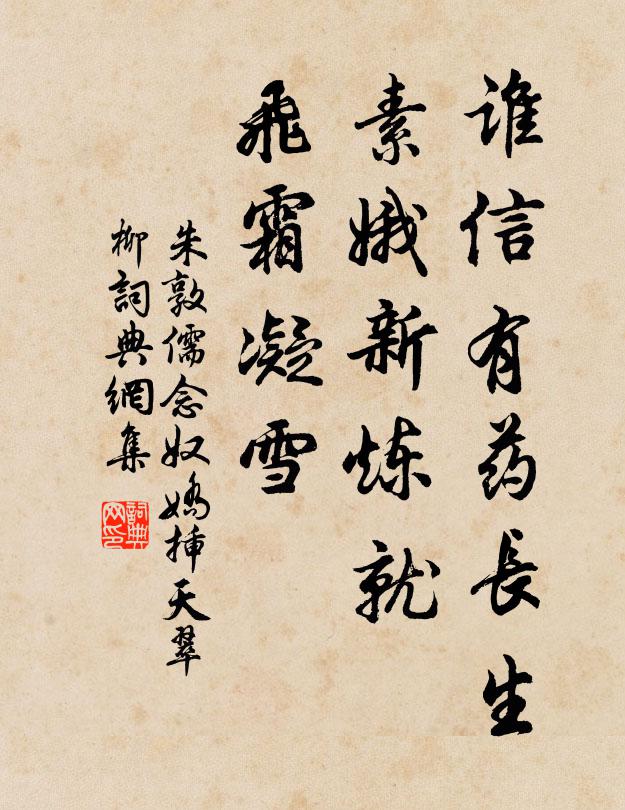 谁信有药長生
素娥新炼就
飛霜凝雪
朱敦儒念奴嬌挿天翠
柳詞典網集
詞典网印